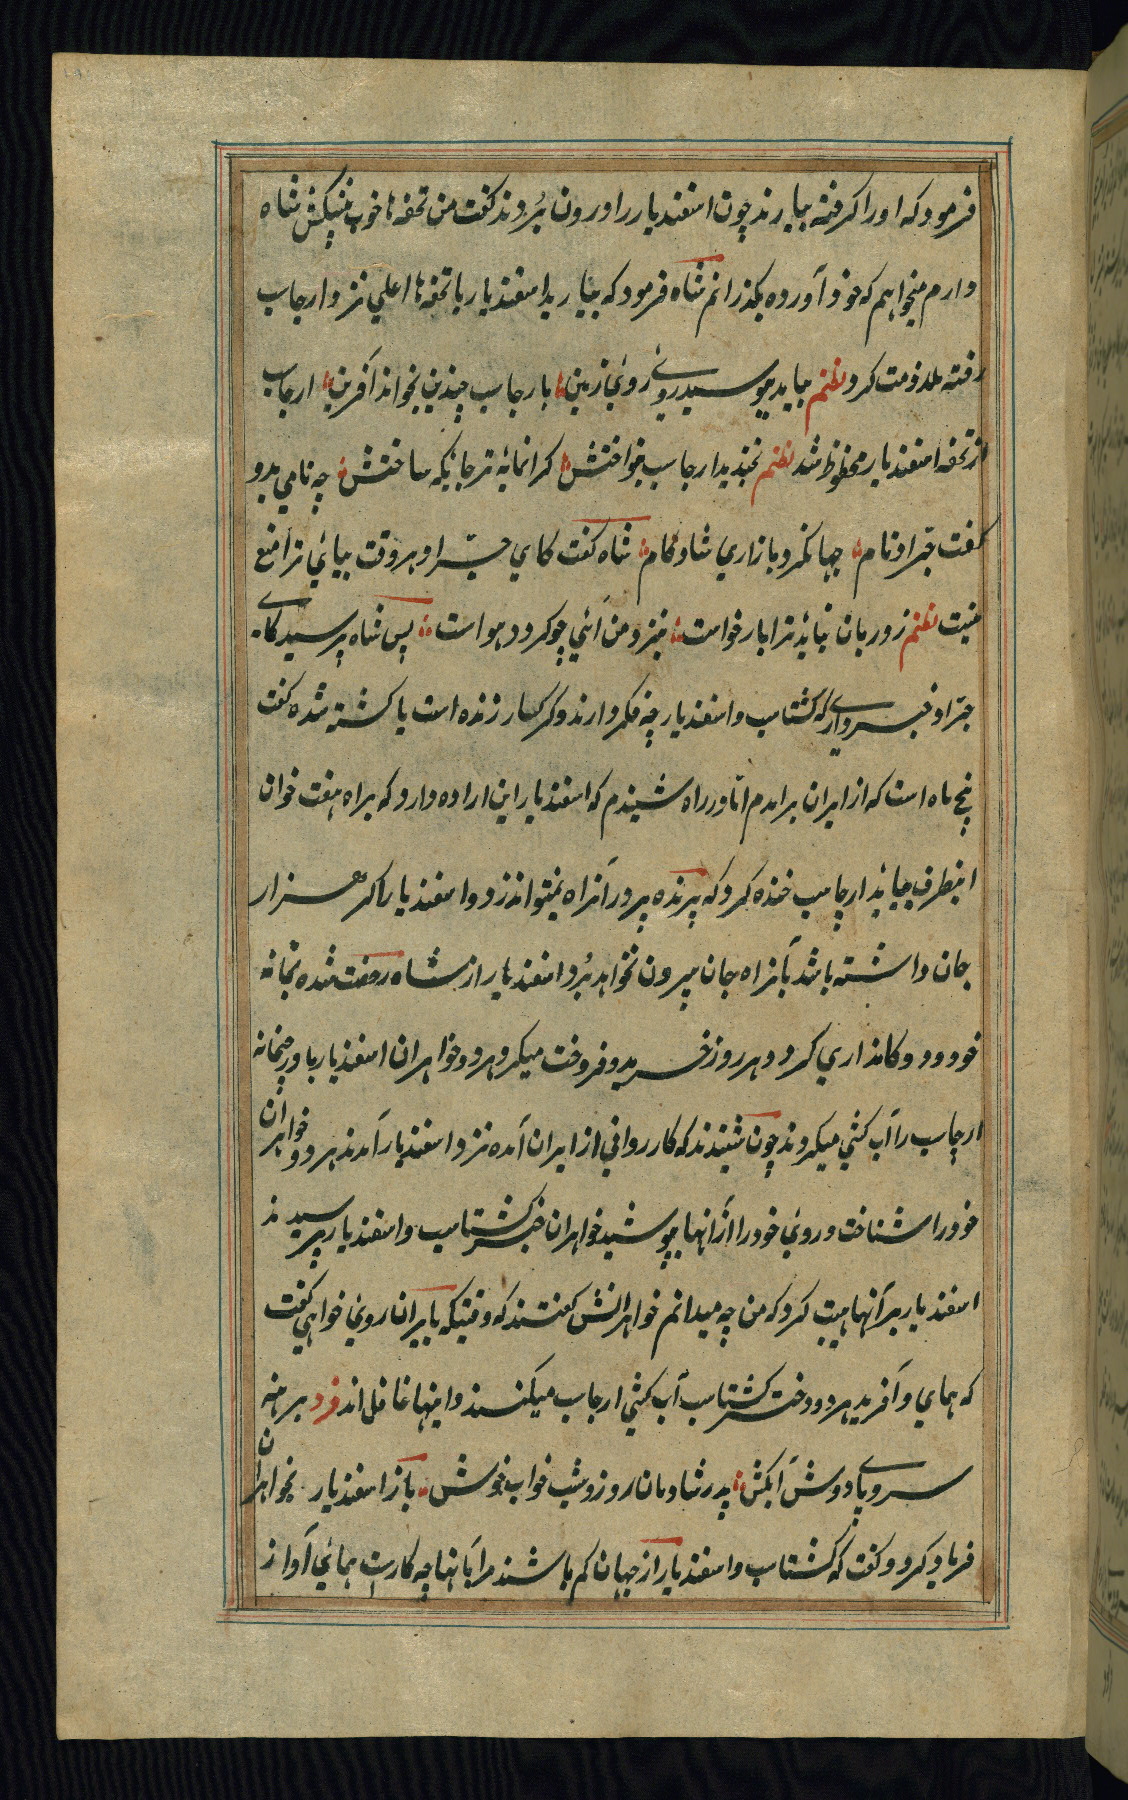 فرمود که اورا کرفته بیارند چون اسفندیار را درون بُردند کفت من تحفه‌ها خوب پیشکش شاه
دارم میخواهم که خود آورده بکذرانم شاه فرمود که بیارید اسفندیار با تحفه‌ها اعلي نزد ارجاسب
رفته ملازمت کرد نظم بیامد ببوسید روی زمین بارجاسب چندین بخواند آفرین ارجاسب
از تحفه اسفندیار محظوظ شد نظم بخندید ارجاسب بنواختش کرانمایه‌تر جایکه ساختش چه نامي بدو
کفت خرّاد نام جهانکرد و بازاري شادکام شاه کفت کاي خرّاد هر وقت بیائي ترا منع
نیست نظم ز دربان نباید ترا بار خواست بنزد من آئي چو کردد هواست پس شاه پرسید کاي
خرّاد خبر داري که کشتاسب و اسفندیار چه فکر دارند و کرکسار زنده است یا کشته شده کفت
پنج ماه است که از ایران برامدم اتا در راه شنیدم که اسفندیار این اراده دارد که براه هفت خوان
اینطرف بیاید ارجاسب خنده کرد که پرنده پر در آنراه نمیتواند زد و اسفندیار اکر هزار
جان داشته باشد بآنراه جان بیرون نخواهد بُرد اسفندیار از شاه رخصت شده بخانه
خود و دوکانداري کرد و هر روز خرید و فروخت میکرد هر دو خواهران اسفندیار باورچیخانه
ارجاسب را آب کشي میکردند چون شنیدند که کاررواني از ایران آمده نزد اسفندیار آمدند هر دو خواهران
خود را شناخت و روي خود را از آنها پوشید خواهران خبر کشتاسب و اسفندیار پرسیدند
اسفندیار بر آنها هیبت کرد که من چه میدانم خواهرانش کفتند که وقتیکه بایران روي خواهي کفت
که هماي و آفرید هر دو دختر کشتاسب آب کشي ارجاسب میکنند و اینها غافل اند فرد برهنه
سر و پاي و دوش آبکش پدر شادمان روز و شب خواب خوش باز اسفندیار بخواهران
فریاد کرد و کفت که کشتاسب و اسفندیار از جهان کم باشند مرا بآنها چه کارست همائي آواز